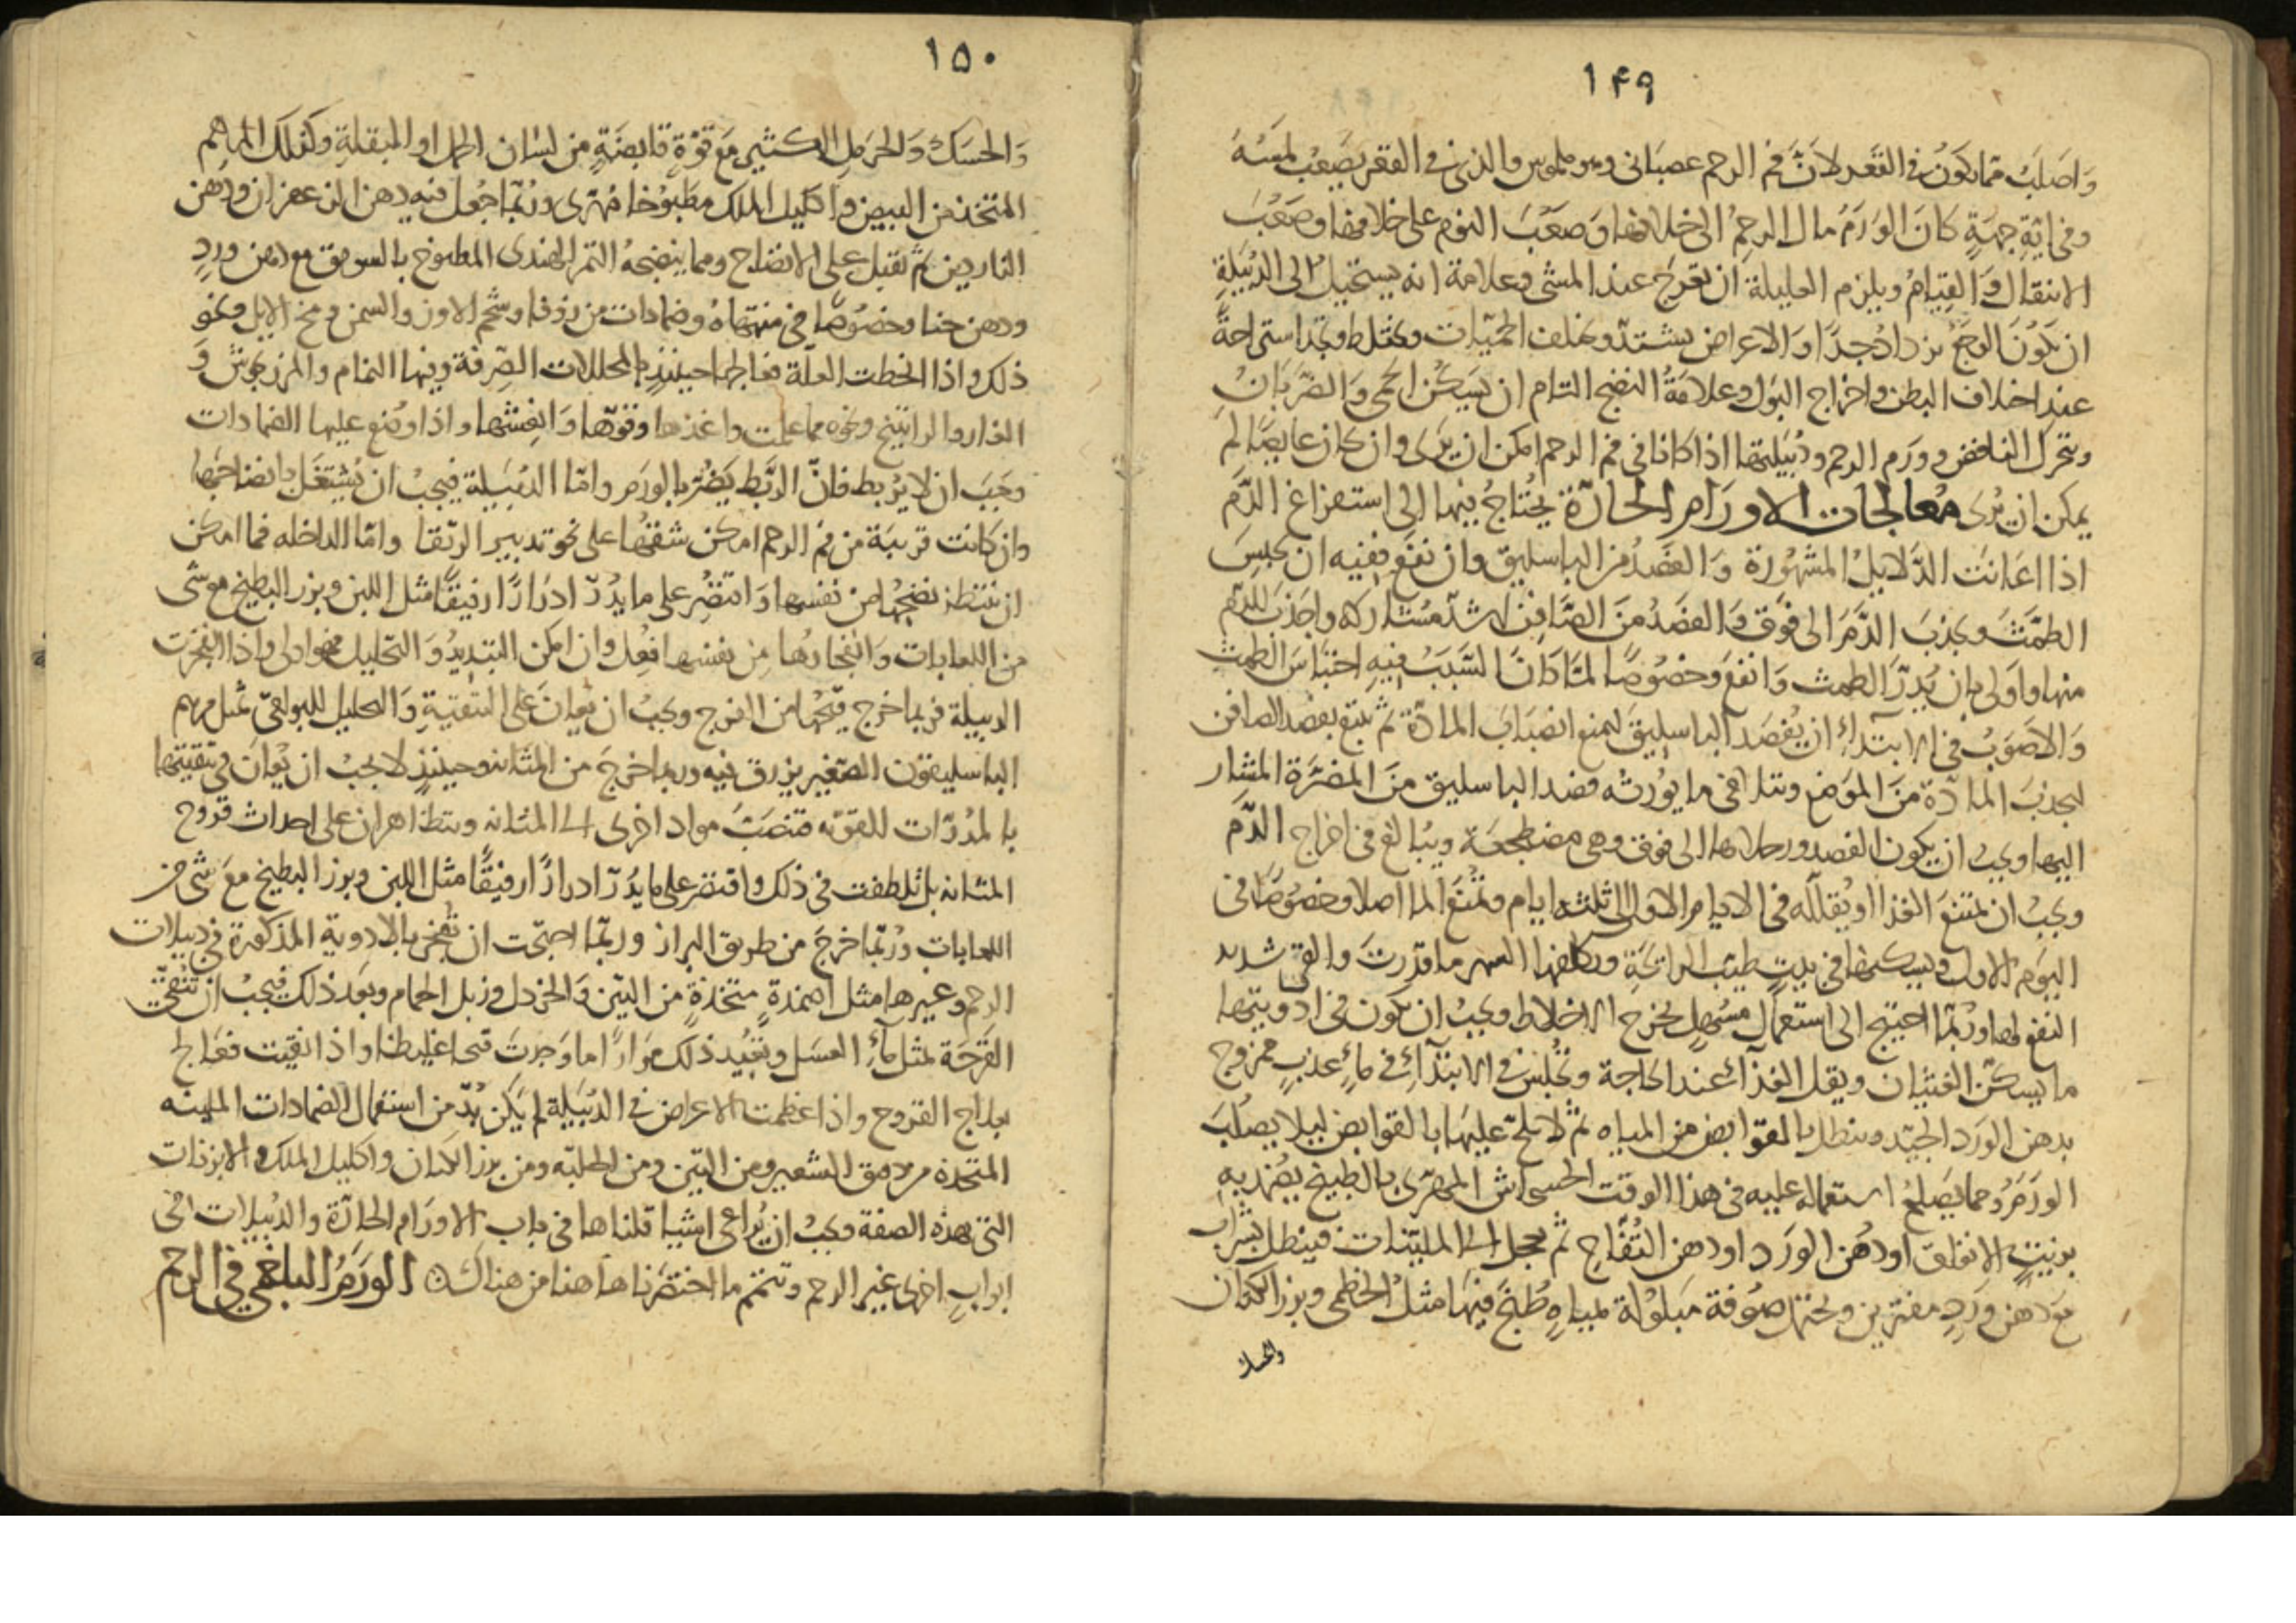 ١٤٩
وَاصَلَبُ مما يكوَنُ في القَعر لاَنَّ فم الرحم عصبانى وهو ملموس والذى فى القعر يَصعُب لمَسُهُ
وفى ايّةِ جهَةٍ كانَ الوَرَمُ مال الرحِمُ الى خلافها وَصَعُبَ النوم على خلافها وصَعُبَ
الانتقال وَالقِيَامُ ويلزم العليلة ان تعرج عند المشى وعلامة انه يستحيل الى الدُبَيلةِ
ان يكوُنَ الوجَع يزدادُ جدًا وَالاعراض يشتدّ ويختلف الحميّات ويختلط ويجَد استراحةً
عند اختلاف البطن واخراج البَول وعلامَةُ النضج التام ان يَسَكُن الحمى وَالضّربَانُ
ويتحرك النافض وورَم الرحم ودُبَيلتها اذا كانا فى فم الرحم امكن ان يرَى وان كان غايصًا لَم
يمكن ان يُرىَ مُعالجات الاورَامِر الحارّة يحُتاجُ فيها الى استفراغ الدَّم
اذا اعَانتَ الدَّلايلُ المشهُورَة وَالفَصَدُ من الباسليق وان نفَع ففيه ان يحَبِسَ
الطمَّثَ ويجذبَ الدَّمَ الى فَوق وَالفصَدُ منَ الصَّافِن اشدّ مشاركه واجذَب للدَّم
منها وَاولى بان يُدِرّ الطمث وَانفعَ وخصُوصًا لمَّا كانَ السَّبَبُ فيهِ احتبَاسَ الطمث
وَالاصَوَبُ فى الابتدآءِ ان يُفصَد الباسليق ليمنع انصبَابَ المادّة ثم يتبع بفصد الصافن
ليجذبَ المادّة منَ الموَضع ويتلافى ما يوُرثه فصد الباسليق منَ المضرَّة المشار
اليها ويجبُ ان يكون الفصد ورجلاها الى فوق وهى مضطجعَة ويُبالغ فى اخراج الدَّم
ويجبُ ان تمتنعَ الغذا او يُقللَه فى الايام الاول الى ثلثة ايام وتمُنَع الما اصلا وخصُوصًا فى
اليوَم الاول ويسكنها فى بيتٍ طيّب الرائحَةِ ويكلفها السهر ما قدَرتَ والقى شديد
النفع لها ورُبّما احتيج الى استعمال مسُهِل يُخرج الاخلاط ويجبُ ان يكوَن فى ادويتها
ما يسكّن الغثيان ويقل الغذآءَ عند الحاجة وتُجلس فى الابتدآءِ فى مآءٍ عذبٍ ممزوج
بدهن الورَد الجيّد وينطل بالقوابض من المياه ثم لا يلحّ عليهَا بالقوابض ليلا يصَلُبَ
الورَمُ ومما يصَلحُ استعماله عليه فى هذا الوقت الخشخاش المهرى بالطبخ يضُمد به
بزيتٍ الانفاق او دُهن الورَد او دهن التُفّاحِ ثم يعجل الى الملّينات فينطل بشراب
مَع دهن وَردٍ مفترين وتحتمل صوُفة مَبلوُلة بمياهٍ طُبخَ فيهَا مثلُ الخطمى وبزر الكتان
والحسك
١٥٠
وَالحسَكُ وَالحَرمل الكثير مَع قوّةٍ قابضَةٍ من لسَان الحمل او البقلةِ وكذلك المراهم
المتخذة من البيض واكليل الملك مطبوُخا مُهّرى ورُبّما جُعل فيه دهن الزعفران ودهن
الناردين ثم تقبل على الانضاج ومما ينضجهُ التمر الهندى المطبوخ بالسويق مع دهن وردٍ
ودهن حنا وخصُوصًا فى منتهاهُ وضمادات من زوفا وشحم الاوز والسمن ومخ الايل ونحو
ذلك واذا انحطت العلّة فعالجها حينئذٍ بالمحللات الصِّرفة وفيها النمام والمرزنجوش وَ
الغار والراتينج ونحوه مما علمت واغذها وقوّها وَانعِشها واذا وُضع عليها الضمادات
وجَبَ ان لا يُربط فانَّ الرَّبَط يَضُرّ بالورَم وامّا الدُبَيلة فيجبُ ان يُشتغَل بانضاجها
وان كانت قريبَة من فم الرحم امكن شقهُا على نحو تدبير الرتقا وامّا الداخله فما امكن
ان ينتظر نضجهُا من نفسها وَاقتصِر على ما يُدُرّ ادرَارًا رفيقًا مثل اللبن وبزر البطيخ مع شى
من اللعابات وَانفجَارُها من نفسها افعَل وان امكن التبديدُ وَالتحليل فهو اولى واذا انفجرت
الدبيلة فربما خرج قيَحُها من الفرج ويجبُ ان يُعانَ على التنقيةِ وَالتحليل للبواقى بمثل مرهم
الباسليقون الصّغير يزرق فيه وربما خرجَ من المثانه وحينئذٍ لا يجبُ ان يُعانَ فى تنقيتها
بالمُدرّات القويّه فتنصَبّ مواد اخرى الى المثانه ويتظاهران على احداث قروح
المثانه بل تلطفت فى ذلك واقتصر على ما يُدُرّ ادرارًا رفيقًا مثل اللبن وبزر البطيخ مَعَ شى من
اللعابات ورُبّما خرجَ من طريق البراز وربّما احتجّت ان تُفجر بالادوية المذكورة فى دبيلات
الرحم وغيرها مثل اضمدةٍ متخذةٍ من التين وَالخردل وزبل الحمام وبعَد ذلك فيجبُ ان تُنقيّ
القرَحَة بمثل مآءِ العسَل وتعُيد ذلك مِرَارًا ما وَجدتَ قيحا غليظا واذا نقيت فعَالج
بعلاج القروح واذا عظمت الاعراض فى الدُبَيلة لم يكن بُدّ من استعمال الضمادات الملينه
المتخذة من دقيق الشعير ومن التين ومن الحلبّه ومن بزر الكتان واكليل الملك والابزنات
التى بهذه الصفة ويجبُ ان يُراعى اشيا قلناها فى باب الاورَام الحارّة والدُبَيلات فى
ابوابٍ اخرى غير الرحم وتتمم ما اختصَرناها هاهنا من هناك الورَمُ البلغمى فى الرحم